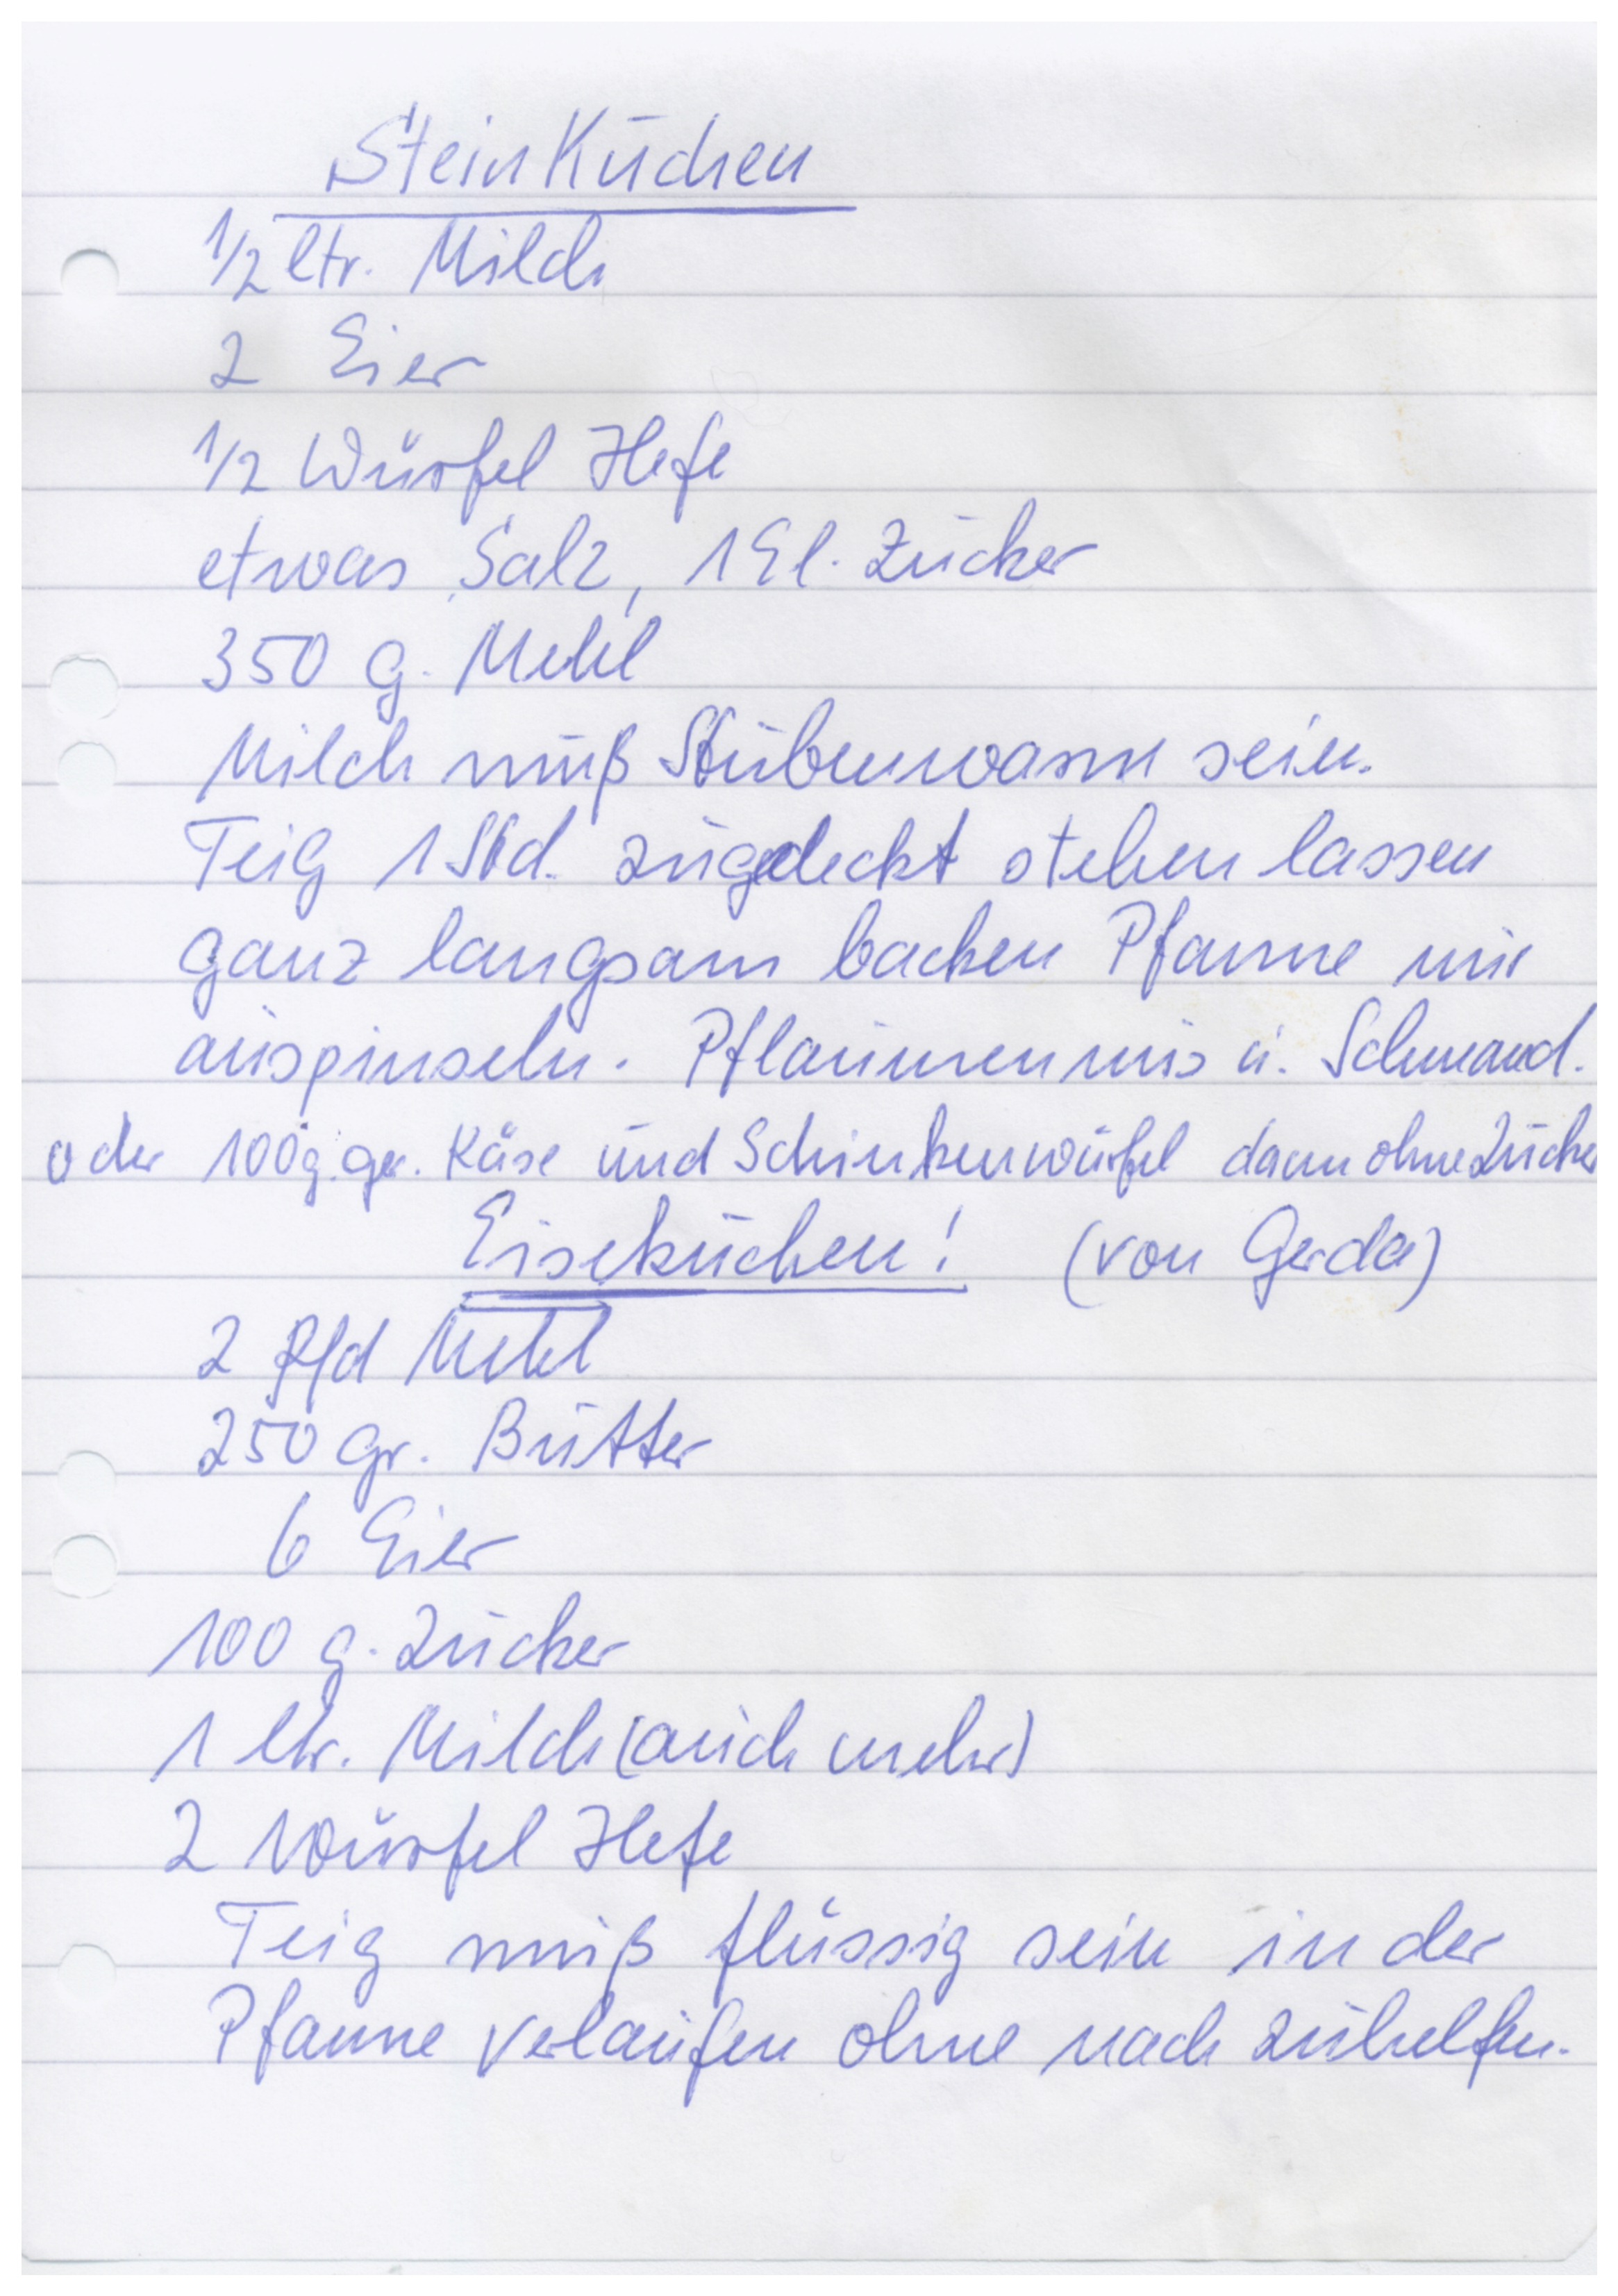 SteinKuchen
1/2 ltr. Milch
2 Eier
1/2 Würfel Hefe
etwas Salz, 1 El. Zucker
350 g. Mehl
Milch muß Stubenwarm sein.
Teig 1 Std. zugedeckt stehen lassen
ganz langsam backen Pfanne nur
auspinseln. Pflaumenmus u. Schmand.
oder 100g. ger. Käse und Schinkenwürfel dann ohne Zucker
Eisekuchen! (von Gerda)
2 Pfd Mehl
250 gr. Butter
6 Eier
100 g. Zucker
1 ltr. Milch (auch mehr)
2 Würfel Hefe
Teig muß flüssig sein in der
Pfanne verlaufen ohne nach zuhelfen.